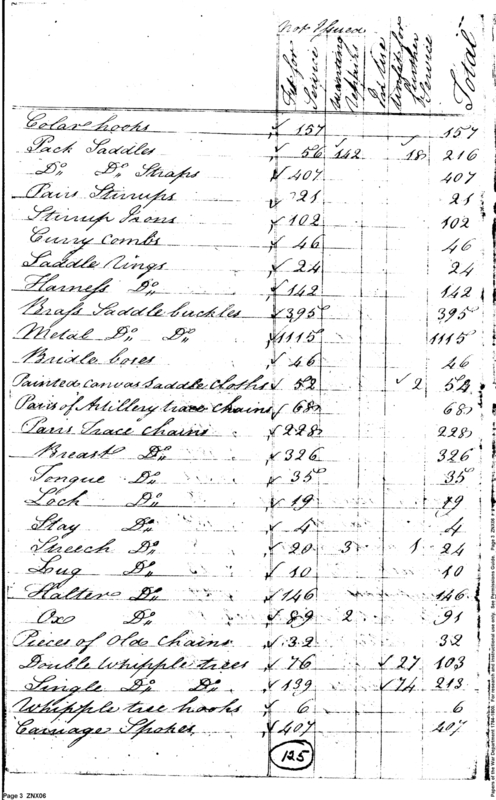 Not Issued
Fit for Service | Wanting Repairs | In Use | Unfit for Further Service | Total
Colar hooks 157 157
Pack Saddles 56 142 18 216
Do,, Do,, Straps 407 407
Pairs Stirrups 21 21
Stirrup Irons 102 102
Curry Combs 46 46
Saddle rings 24 24
Harness Do,, 142 142
Brass Saddle buckles 395 395
Metal Do,, Do,, 1115 1115
Bridle 46 46
Painted canvas Saddle cloths 52 2 54
Pairs of Artillery trace chains 68 68
Pairs Trace chains 228 228
Breast Do,, 326 326
Tongue Do,, 35 35
Lock Do,, 19 19
Stay Do,, 4 4
Streech Do,, 20 3 1 24
Lug Do,, 10 10
Halter Do,, 146 146
Ox Do,, 89 2 91
Pieces of Old Chains 32 32
Double Whipple trees 76 27 103
Single Do,, Do,, 139 74 213
Whipple tree hooks 6 6
Carriage Spokes 407 407
125
Page 3 ZNX06